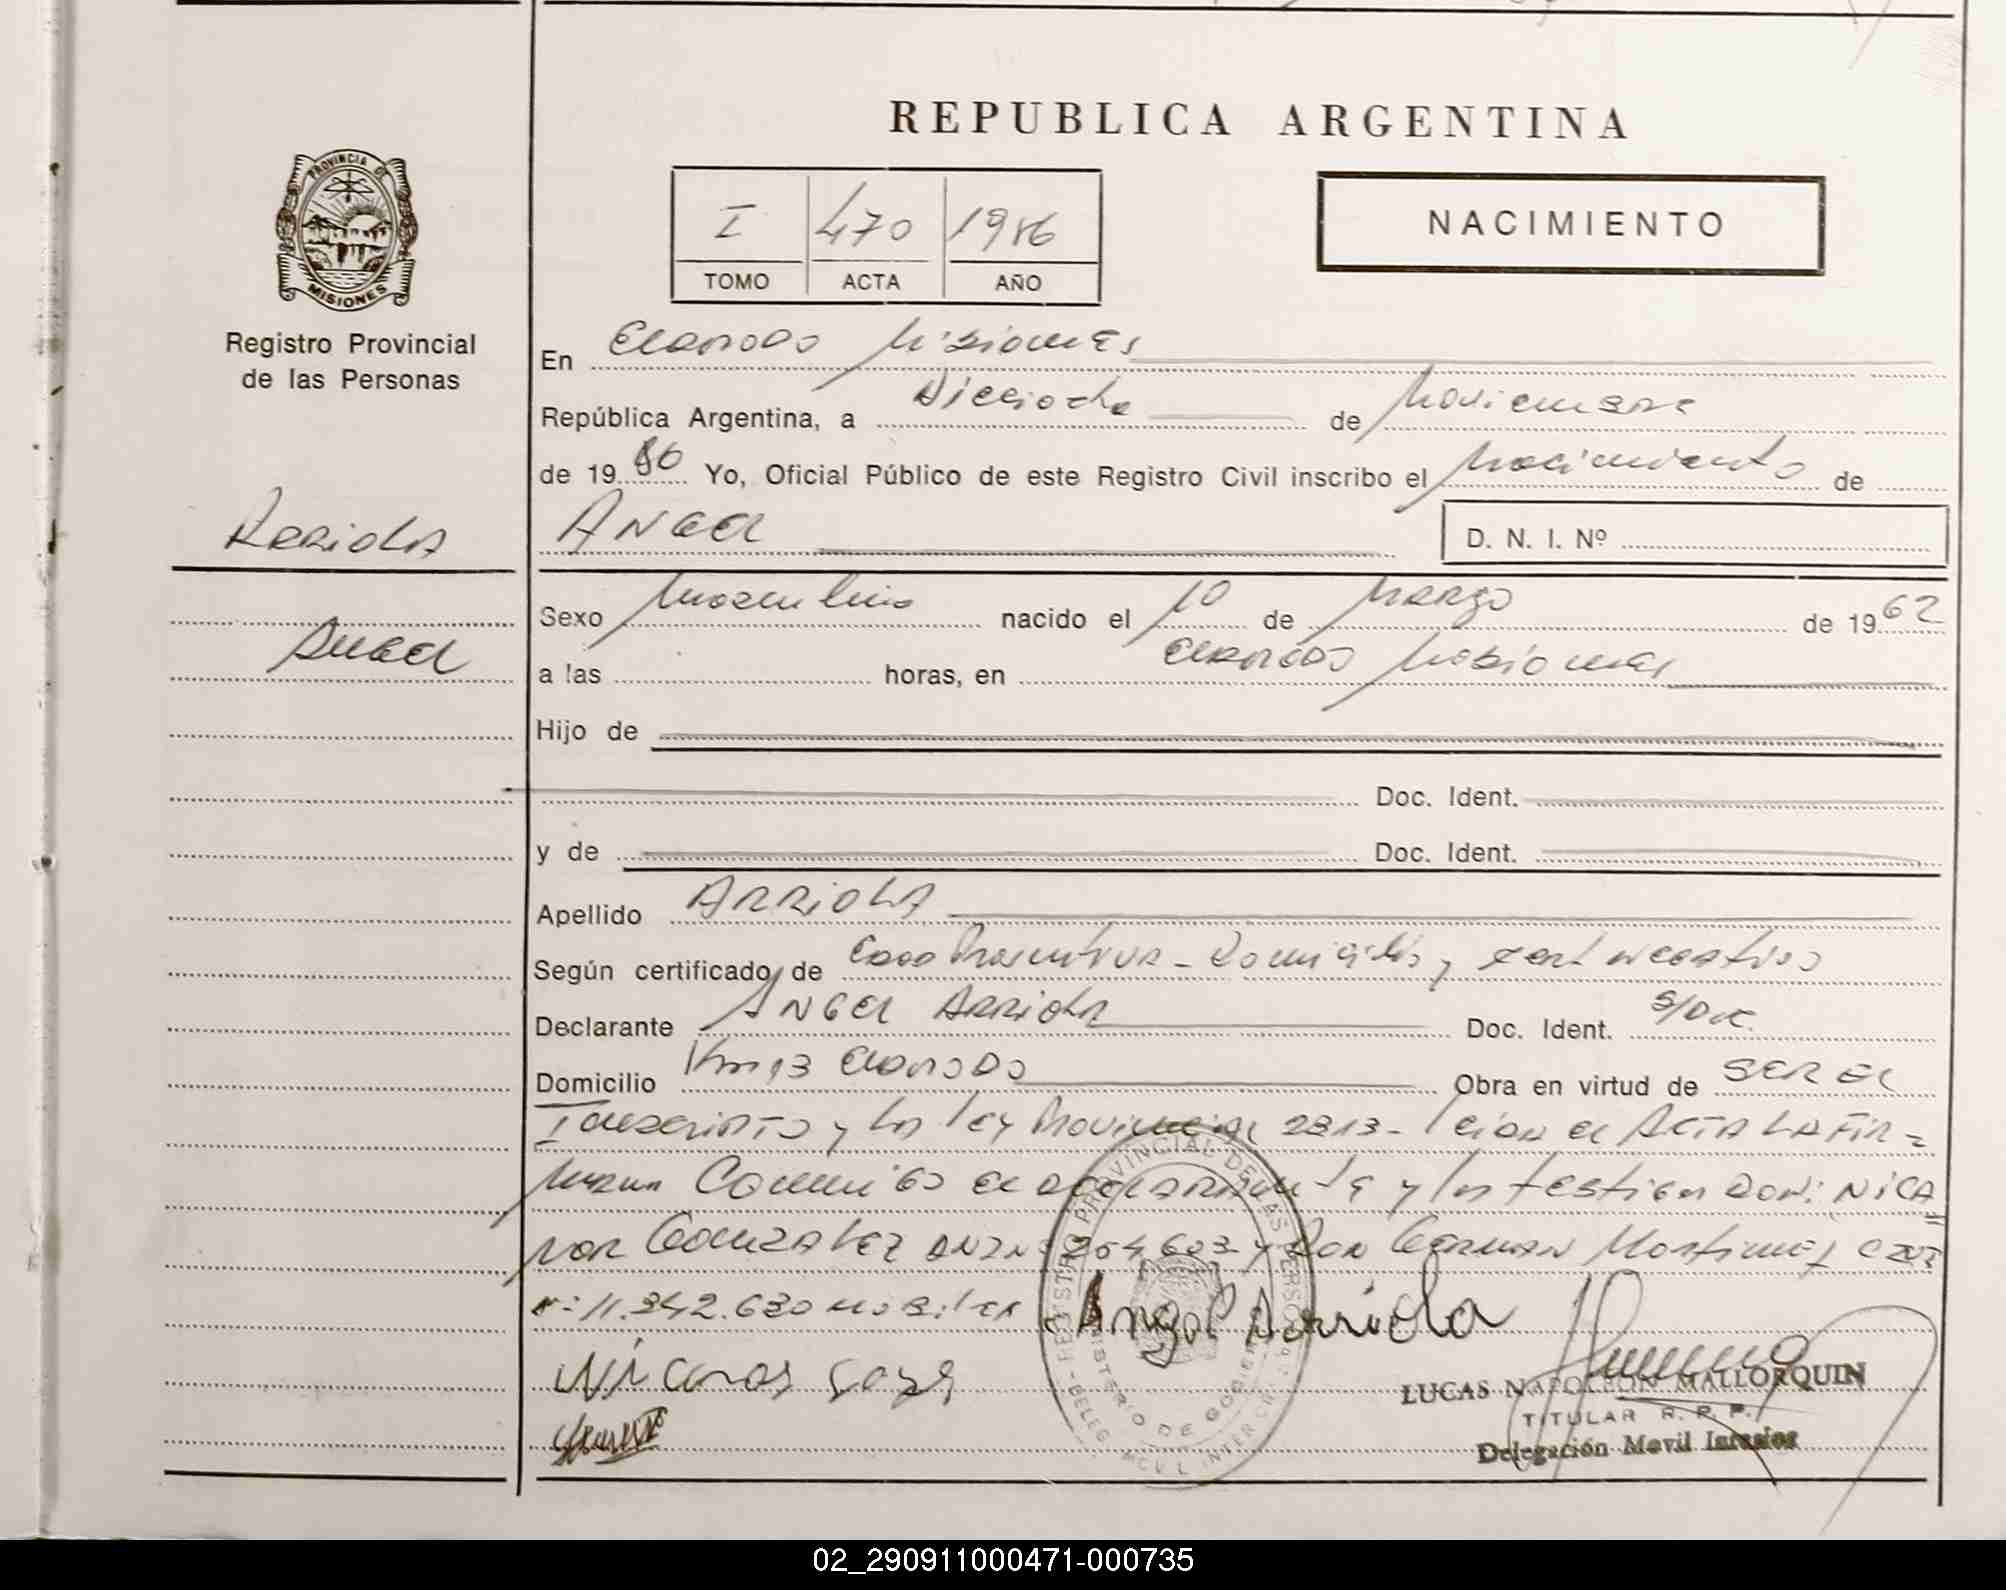 REPUBLICA ARGENTINA
PROVINCIA DE
MISIONES
Registro Provincial
de las Personas
I 470 1986
TOMO ACTA AÑO
NACIMIENTO
En Eldorado Misiones
República Argentina, a Dieciocho de Noviembre
de 1986 Yo, Oficial Público de este Registro Civil inscribo el Nacimiento de
Arriola
Angel
D. N. I. Nº
Angel
Sexo Masculino nacido el 10 de Marzo de 1962
a las horas, en Eldorado Misiones
Hijo de
Doc. Ident.
y de Doc. Ident.
Apellido ARRiOLA
Según certificado de Domicilio y
Declarante ANGEL ARRiOLA Doc. Ident. S/Doc.
Domicilio Km 13 Eldorado Obra en virtud de SER EL
Inscripto y La Ley Provincial 2313- Leida el ACTA LA Fir-
man Conmigo el declarante y los testigos Don: NiCA
nor Gonzalez DNI Nº y Don German Martinez
nº 11.342.630
Angel Arriola
LUCAS NAPOLEON MALLORQUIN
TITULAR R. P. P.
Delegación Movil
REGISTRO PROVINCIAL DE LAS PERSONAS
MINISTERIO DE GOBIERNO
02_290911000471-000735